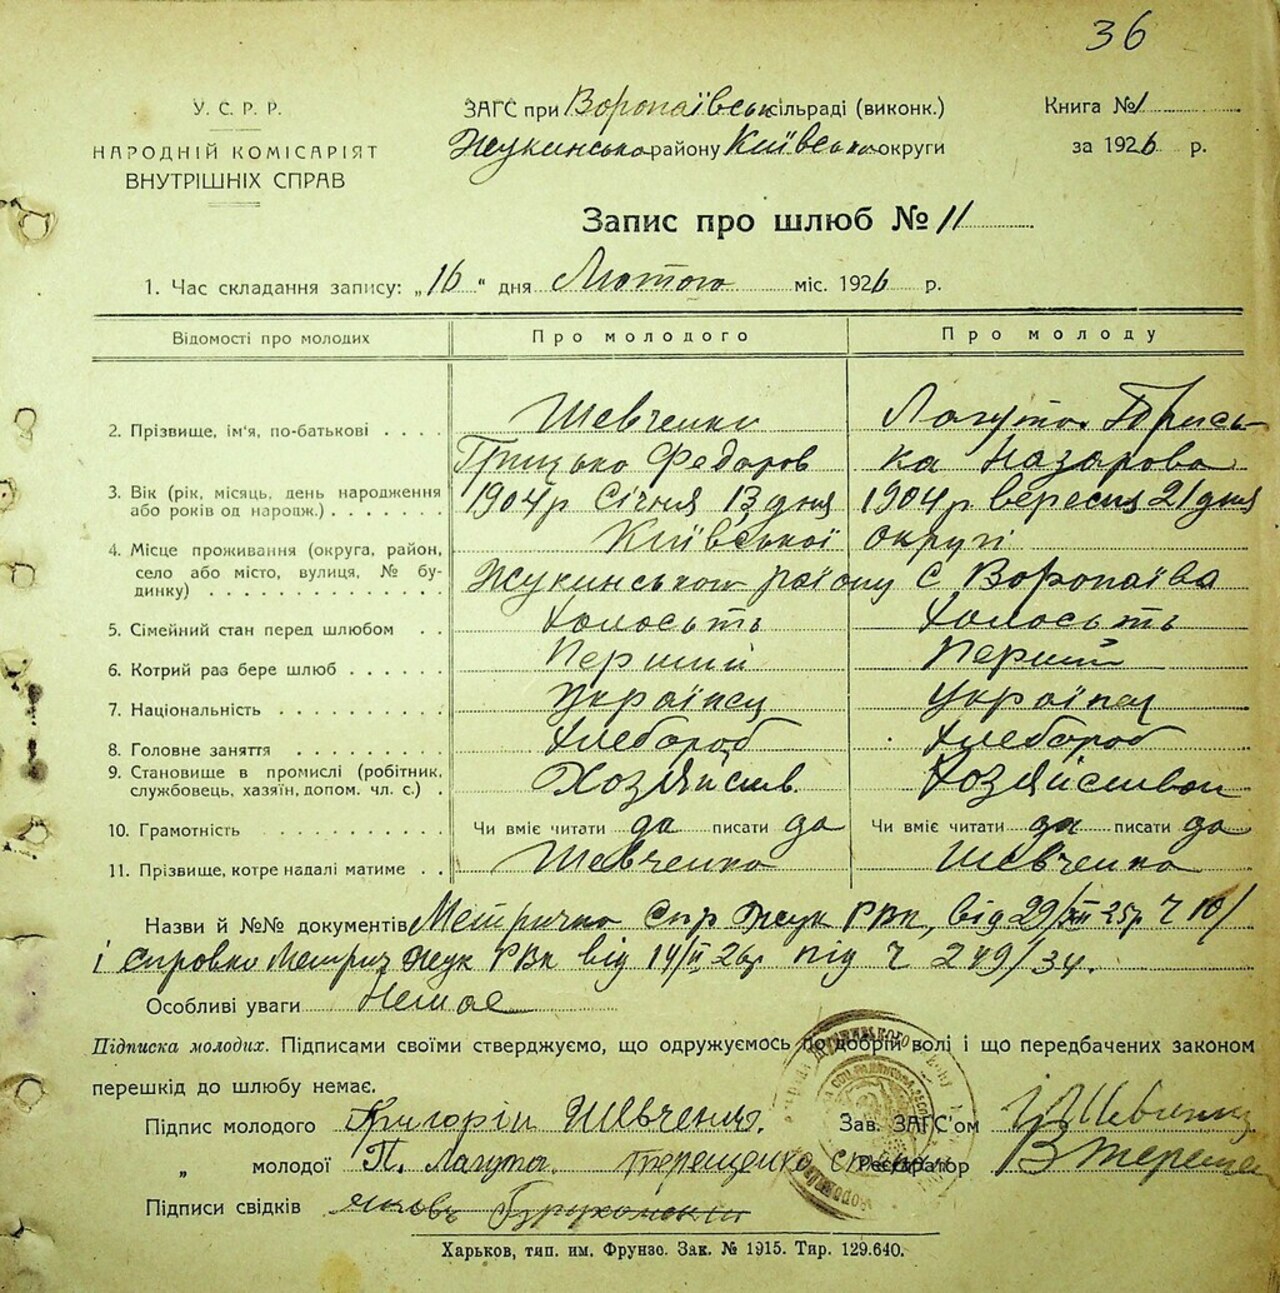 36
У. С. Р. Р.
НАРОДНІЙ КОМІСАРІЯТ
ВНУТРІШНІХ СПРАВ
ЗАГС при Воропаївськ сільраді (виконк.)
Жукинсько району Київсько округи
Книга № 1
за 1926 р.
Запис про шлюб № 11
1. Час складання запису: „16“ дня Лютого міс. 1926 р.
Відомості про молодих Про молодого Про молоду
2. Прізвище, ім'я, по-батькові . . . . Шевченко Лагута
Грицько Федоров ка Назарова
3. Вік (рік, місяць, день народження або років од народж.) . . . . . . . 1904 р Січня 13 дня 1904 р вересня 21 дня
4. Місце проживання (округа, район, село або місто, вулиця, № будинку) . . . . . . . . . . . . . . Київської округі
Жукинського району с Воропаїва
5. Сімейний стан перед шлюбом . . Холостть Холостть
6. Котрий раз бере шлюб . . . . . . Перший Перший
7. Національність . . . . . . . . . . Українец Українец
8. Головне заняття . . . . . . . . . Хлебороб Хлебороб
9. Становище в промислі (робітник, службовець, хазяїн, допом. чл. с.) . Хозяйств.
10. Грамотність . . . . . . . . . . . Чи вміє читати да писати да Чи вміє читати да писати да
11. Прізвище, котре надалі матиме . . Шевченко Шевченко
Назви й №№ документів Метрично Спр Жук РВк, від 29/XII 25р Ч
і справко Метрич Жук РВк від 14/II 26р під Ч 249/34.
Особливі уваги Немає
Підписка молодих. Підписами своїми стверджуємо, що одружуємось по добрій волі і що передбачених законом
перешкід до шлюбу немає.
Підпис молодого Григорій Шевченко. Зав. ЗАГС'ом Шевченко
„ молодої П. Лагута. Терещенко Реєстратор В Тереще
Підписи свідків Яковъ
Харьков, тип. им. Фрунзе. Зак. № 1915. Тир. 129.640.